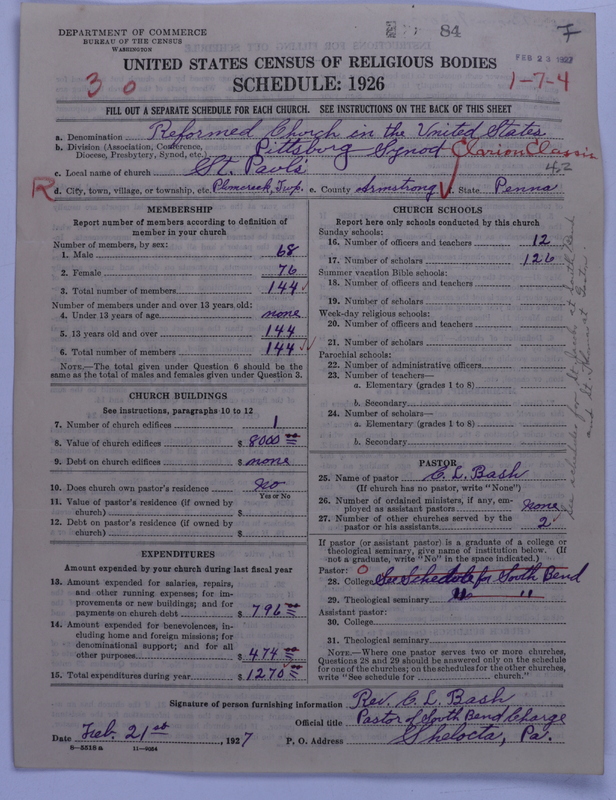 DEPARTMENT OF COMMERCE
BUREAU OF THE CENSUS
WASHINGTON
84
7
FEB 23 1927
UNITED STATES CENSUS OF RELIGIOUS BODIES
SCHEDULE: 1926
3 0
1-7-4
FILL OUT A SEPARATE SCHEDULE FOR EACH CHURCH. SEE INSTRUCTIONS ON THE BACK OF THIS SHEET
a. Denomination Reformed Church in the United States
b. Division (Association, Conference, Diocese, Presbytery, Synod, etc.) Pittsburg Synod Clarion Classis
42
c. Local name of church St. Pauls
R
d. City, town, village, or township, etc. Plumcreek, Twp. e. County Armstrong f. State Penna
MEMBERSHIP
Report number of members according to definition of
member in your church
Number of members, by sex:
1. Male 68
2. Female 76
3. Total number of members 144
Number of members under and over 13 years old:
4. Under 13 years of age none
5. 13 years old and over 144
6. Total number of members 144
NOTE.—The total given under Question 6 should be the
same as the total of males and females given under Question 3.
CHURCH BUILDINGS
See instructions, paragraphs 10 to 12
7. Number of church edifices 1
8. Value of church edifices $ 8000 00
9. Debt on church edifices $ none
10. Does church own pastor's residence No
Yes or No
11. Value of pastor's residence (if owned by
church) $
12. Debt on pastor's residence (if owned by
church) $
EXPENDITURES
Amount expended by your church during last fiscal year
13. Amount expended for salaries, repairs,
and other running expenses; for im-
provements or new buildings; and for
payments on church debt $ 796 00
14. Amount expended for benevolences, in-
cluding home and foreign missions; for
denominational support; and for all
other purposes $ 474 00
15. Total expenditures during year $ 1270 00
CHURCH SCHOOLS
Report here only schools conducted by this church
Sunday schools:
16. Number of officers and teachers 12
17. Number of scholars 126
Summer vacation Bible schools:
18. Number of officers and teachers
19. Number of scholars
Week-day religious schools:
20. Number of officers and teachers
21. Number of scholars
Parochial schools:
22. Number of administrative officers
23. Number of teachers—
a. Elementary (grades 1 to 8)
b. Secondary
24. Number of scholars—
a. Elementary (grades 1 to 8)
b. Secondary
PASTOR
25. Name of pastor C. L. Bash
(If church has no pastor, write "None")
26. Number of ordained ministers, if any, em-
ployed as assistant pastors none
27. Number of other churches served by the
pastor or his assistants 2
If pastor (or assistant pastor) is a graduate of a college or
theological seminary, give name of institution below. (If
not a graduate, write "No" in the space indicated.)
Pastor: 0
28. College See Schedule for South Bend
29. Theological seminary " "
Assistant pastor:
30. College
31. Theological seminary
NOTE.—Where one pastor serves two or more churches,
Questions 28 and 29 should be answered only on the schedule
for one of the churches; on the schedules for the other churches,
write "See schedule for church."
See schedules for St. Jacobs at South Bend
Signature of person furnishing information Rev. C. L. Bash
Official title Pastor of South Bend Charge
Date Feb. 21st, 1927
P. O. Address Shelocta, Pa.
8-5518 a 11-9024